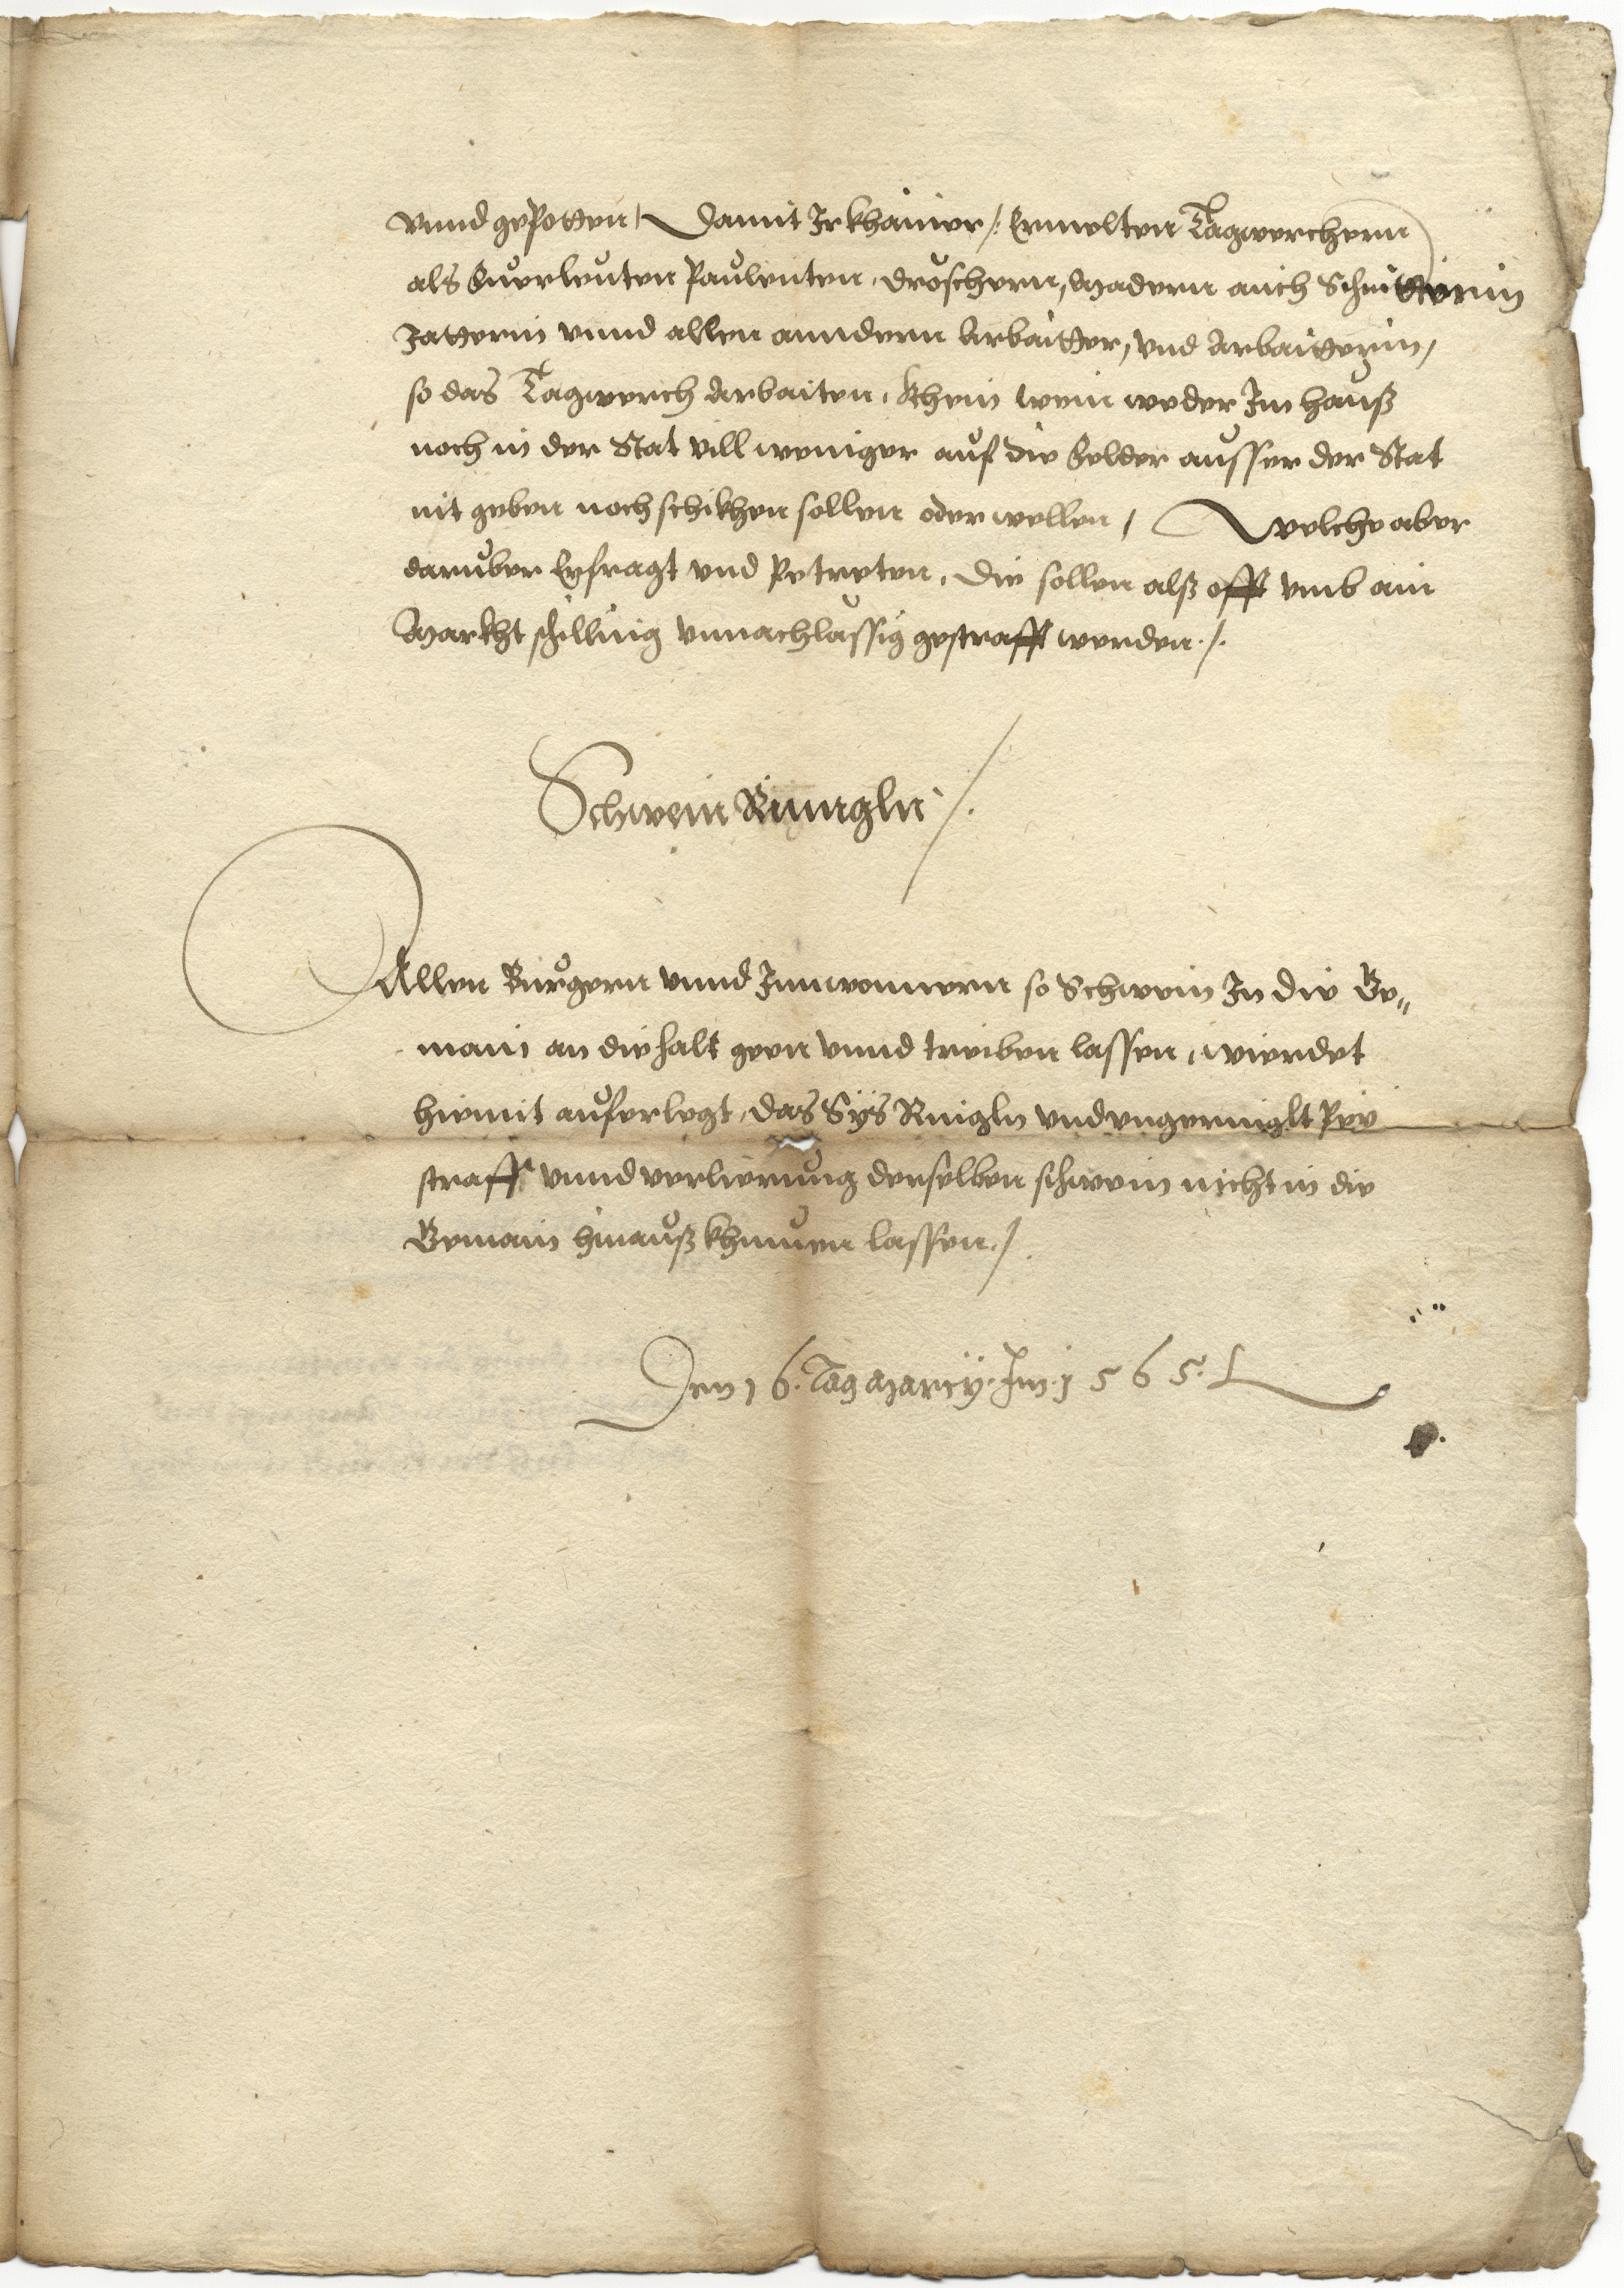 vnnd gepotten / Damit Ir khainer /: Ermelten Tagwerchern
als Fuerleuten Pauleuten, dröschern, Madern auch Schnitterin
Jätterin vnnd allen anndern Arbaitter, vnd Arbaitterin,
so das Tagwerch Arbaiten, khein wein weder Im hauß
noch in der Stat vill weniger auf die Felder ausser der Stat
nit geben noch schikhen sollen oder wellen / Welche aber
daruber Erfragt vnd Petreten, die sollen alß offt vmb ain
Markht schilling vnnachlassig gestrafft werden ./.
Schwein Rinngln /.
Allen Burgern vnnd Innwonnern so Schwein In die Ge„
main an die halt geen vnnd treiben lassen, wierdet
hiemit auferlegt, das Sÿs Ringln vnd vngeringlt Peÿ
straff vnnd verlierung derselben schwein nicht in die
Gemain hinauß khumen lassen ./.
Den 16. Tag Marcÿ. Im 1565.